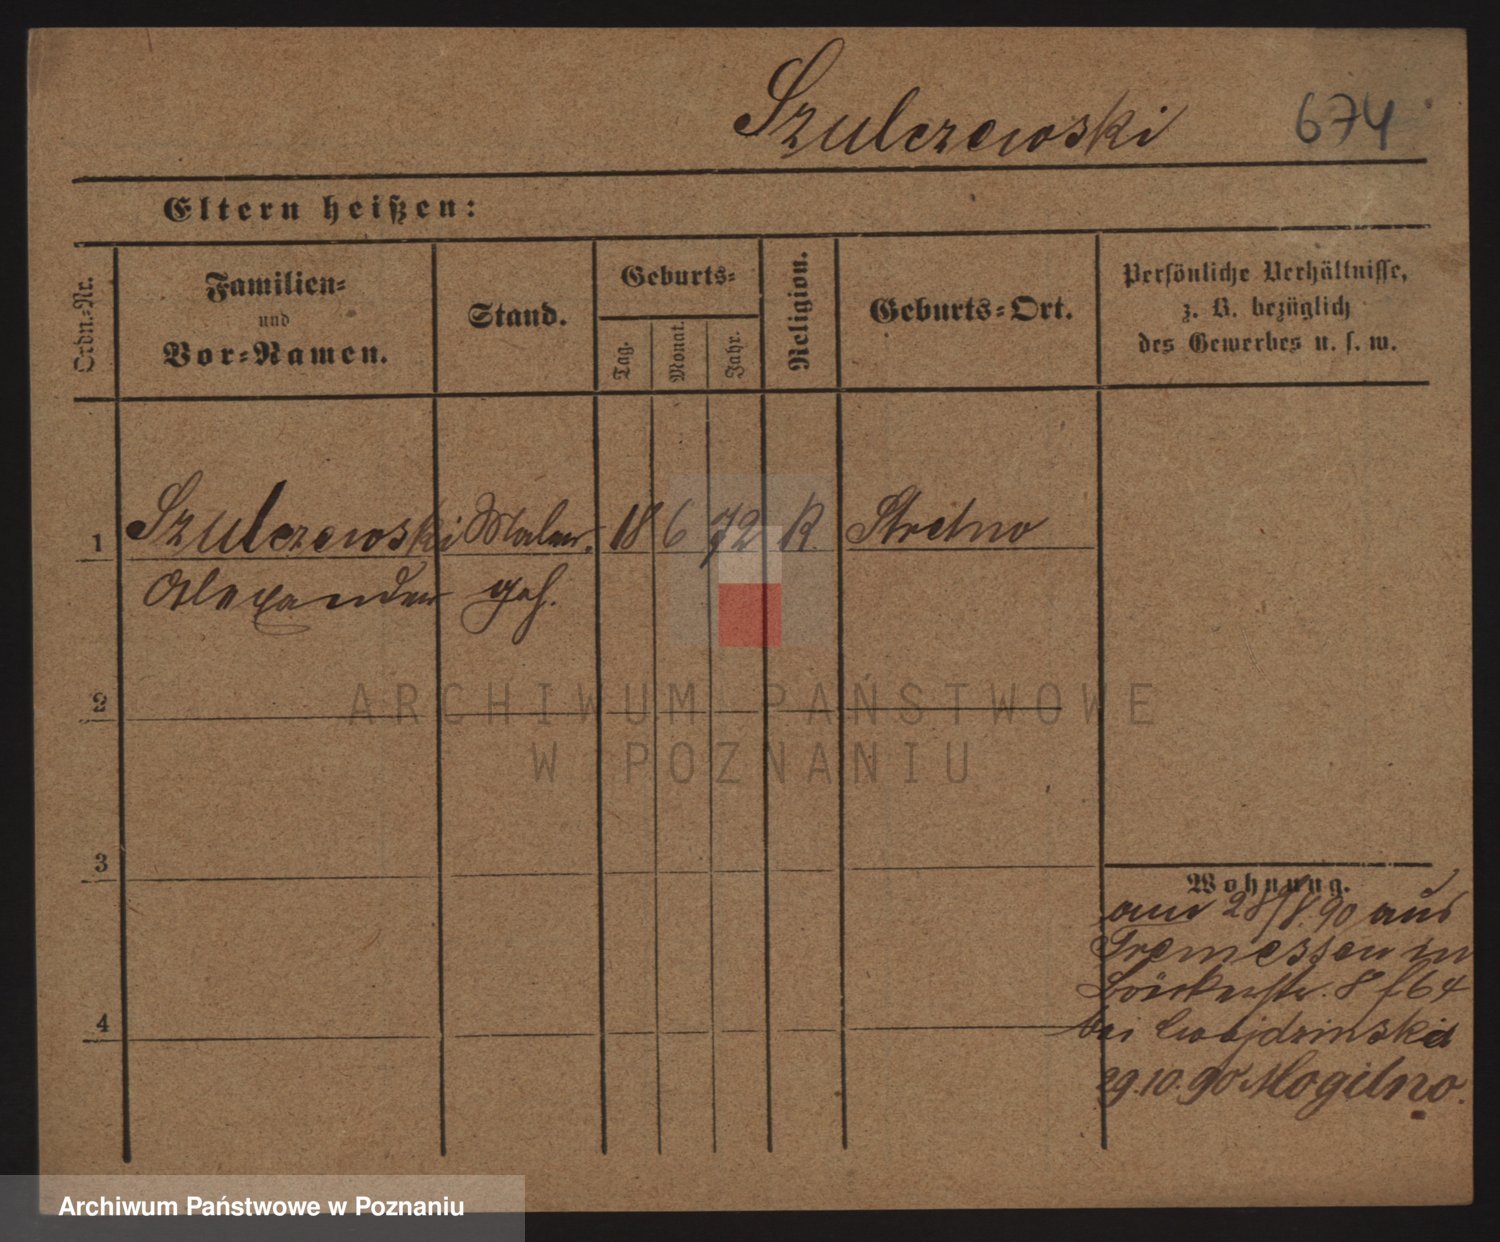 Szulczewski 674
Eltern heißen:
Ordn.-Nr.
Familien-
und
Vor-Namen.
Stand.
Geburts-
Tag.
Monat.
Jahr.
Religion.
Geburts-Ort.
Persönliche Verhältnisse,
z. B. bezüglich
des Gewerbes u. s. w.
1 Szulczewski Maler 18 6 72 K. Strelno
Alexander geh.
2
3
4
Wohnung.
am 28/8.90 aus
Tremessen in
8
bei Wojdzinski
29.10.90 Mogilno.
ARCHIWUM PAŃSTWOWE
W POZNANIU
Archiwum Państwowe w Poznaniu